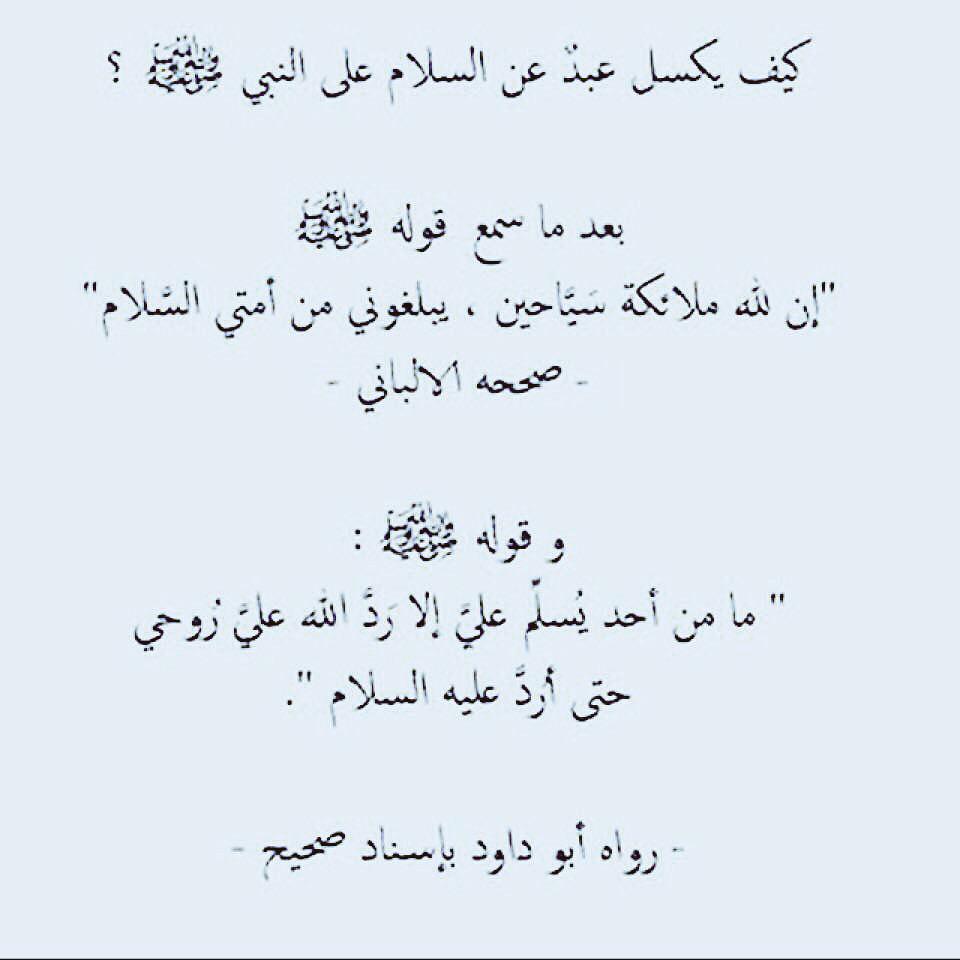 كيف يكسل عبدٌ عن السلام على النبي ﷺ ؟
بعد ما سمع قوله ﷺ
"إن لله ملائكة سَيَّاحين ، يبلغوني من أمتي السَّلام"
- صححه الالباني -
و قوله ﷺ :
" ما من أحد يُسلّم عليَّ إلا رَدَّ الله عليَّ رُوحي
حتى أردَّ عليه السلام ".
- رواه أبو داود بإسناد صحيح -